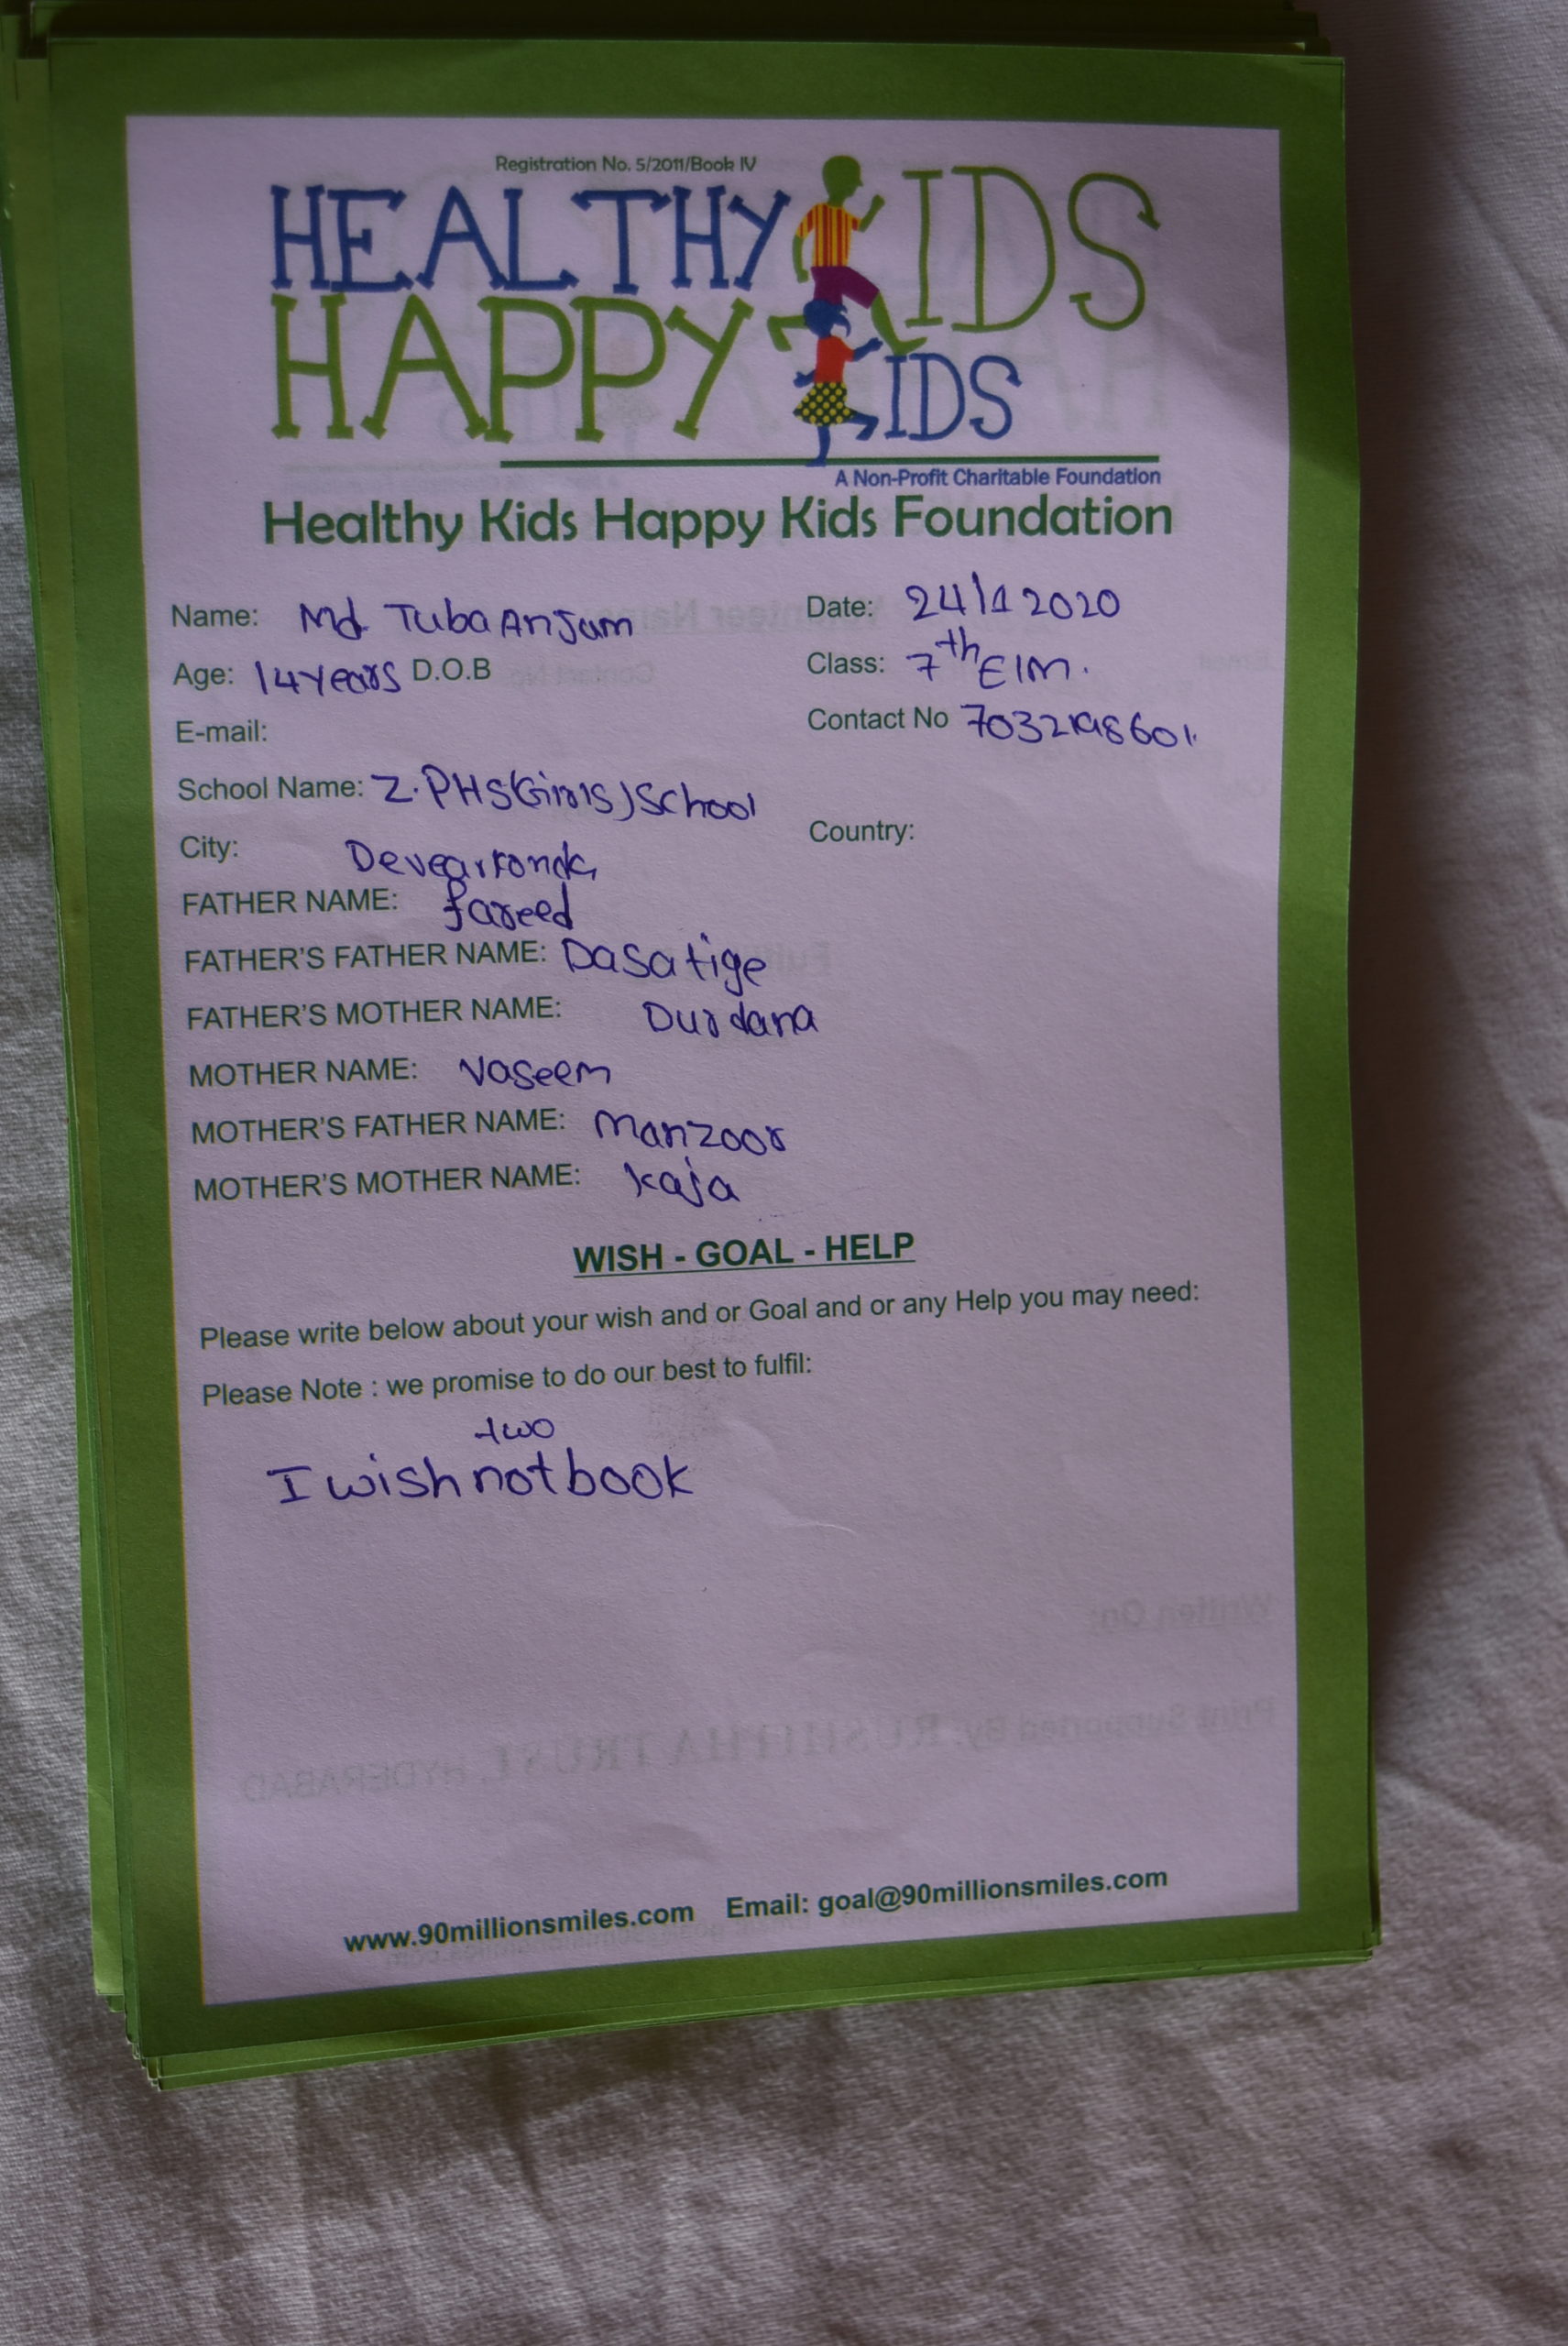 Registration No. 5/2011/Book IV
HEALTHY KIDS
HAPPY KIDS
A Non-Profit Charitable Foundation
Healthy Kids Happy Kids Foundation
Name: Md. Tuba Anjum Date: 24/1 2020
Age: 14 years D.O.B Class: 7th E/M.
E-mail: Contact No
School Name: Z.PHS(Girls)School
City: Country:
FATHER NAME: fareed
FATHER'S FATHER NAME: Dasatige
FATHER'S MOTHER NAME: Durdana
MOTHER NAME: Vaseem
MOTHER'S FATHER NAME: Manzoor
MOTHER'S MOTHER NAME: kaja
WISH - GOAL - HELP
Please write below about your wish and or Goal and or any Help you may need:
Please Note : we promise to do our best to fulfil:
two
I wish not book
Written On:
Print Supported By: RUSHPITHA TRUST, HYDERABAD
www.90millionsmiles.com Email: goal@90millionsmiles.com